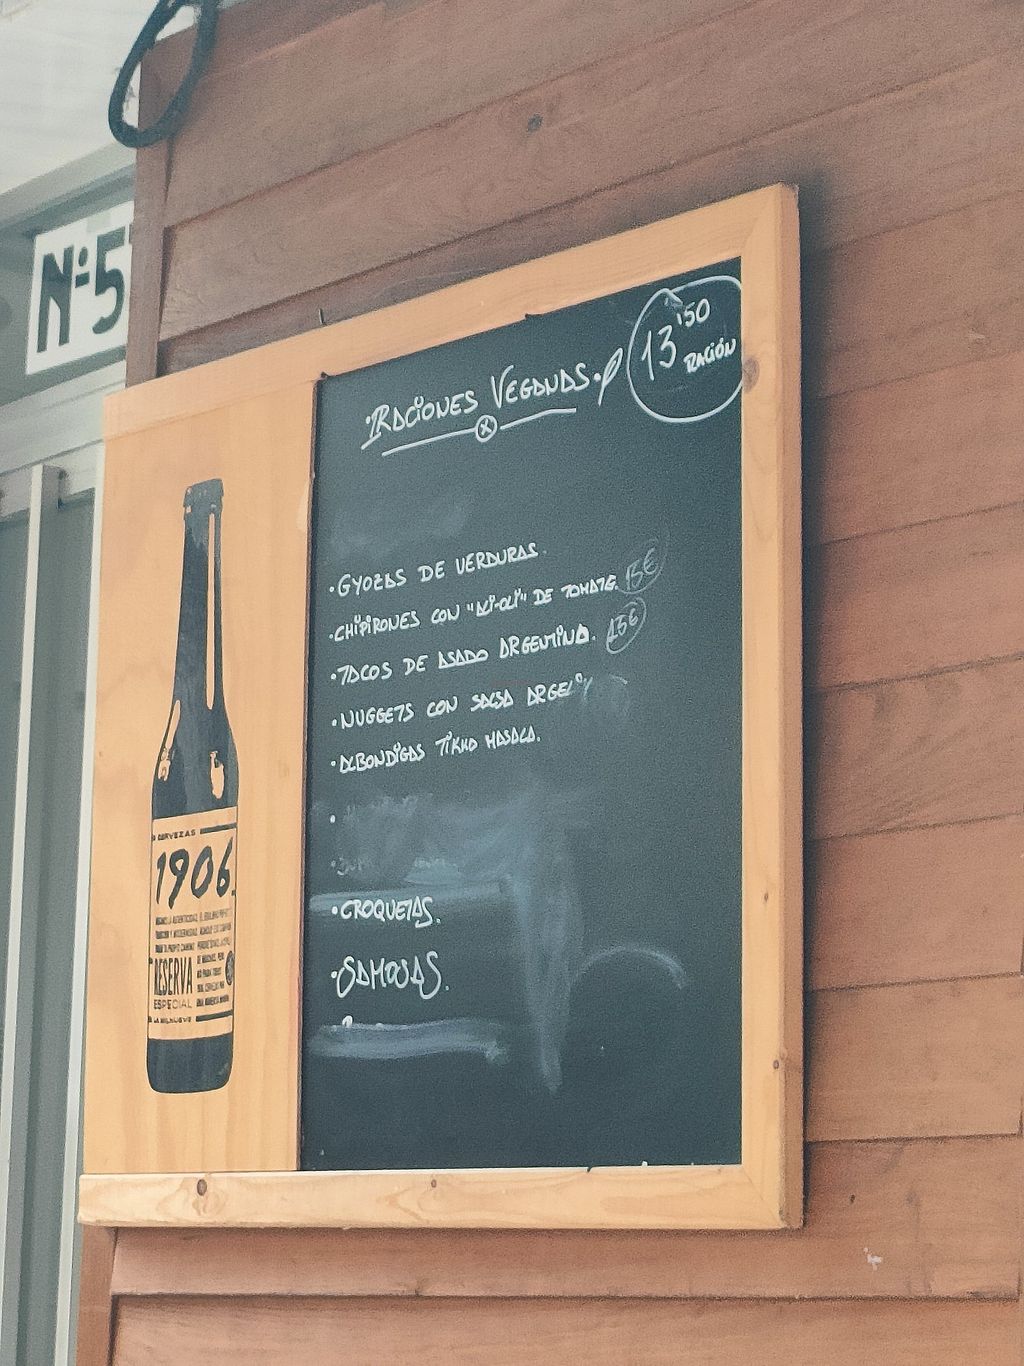 Nº5
RACIONES VEGANAS.
13'50
RACIÓN
·GYOZAS DE VERDURAS.
·CHIPIRONES CON "ALI-OLI" DE TOMATE. 15€
·TACOS DE ASADO ARGENTINO. 15€
·NUGGETS CON SALSA
·ALBONDIGAS TIKKA MASALA.
·CROQUETAS.
·SAMOSAS.
CERVEZAS
1906
RESERVA
ESPECIAL